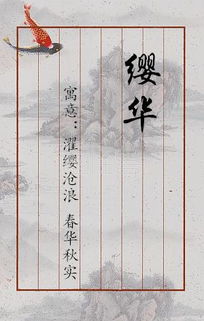 缨华
寓意：濯缨沧浪 春华秋实